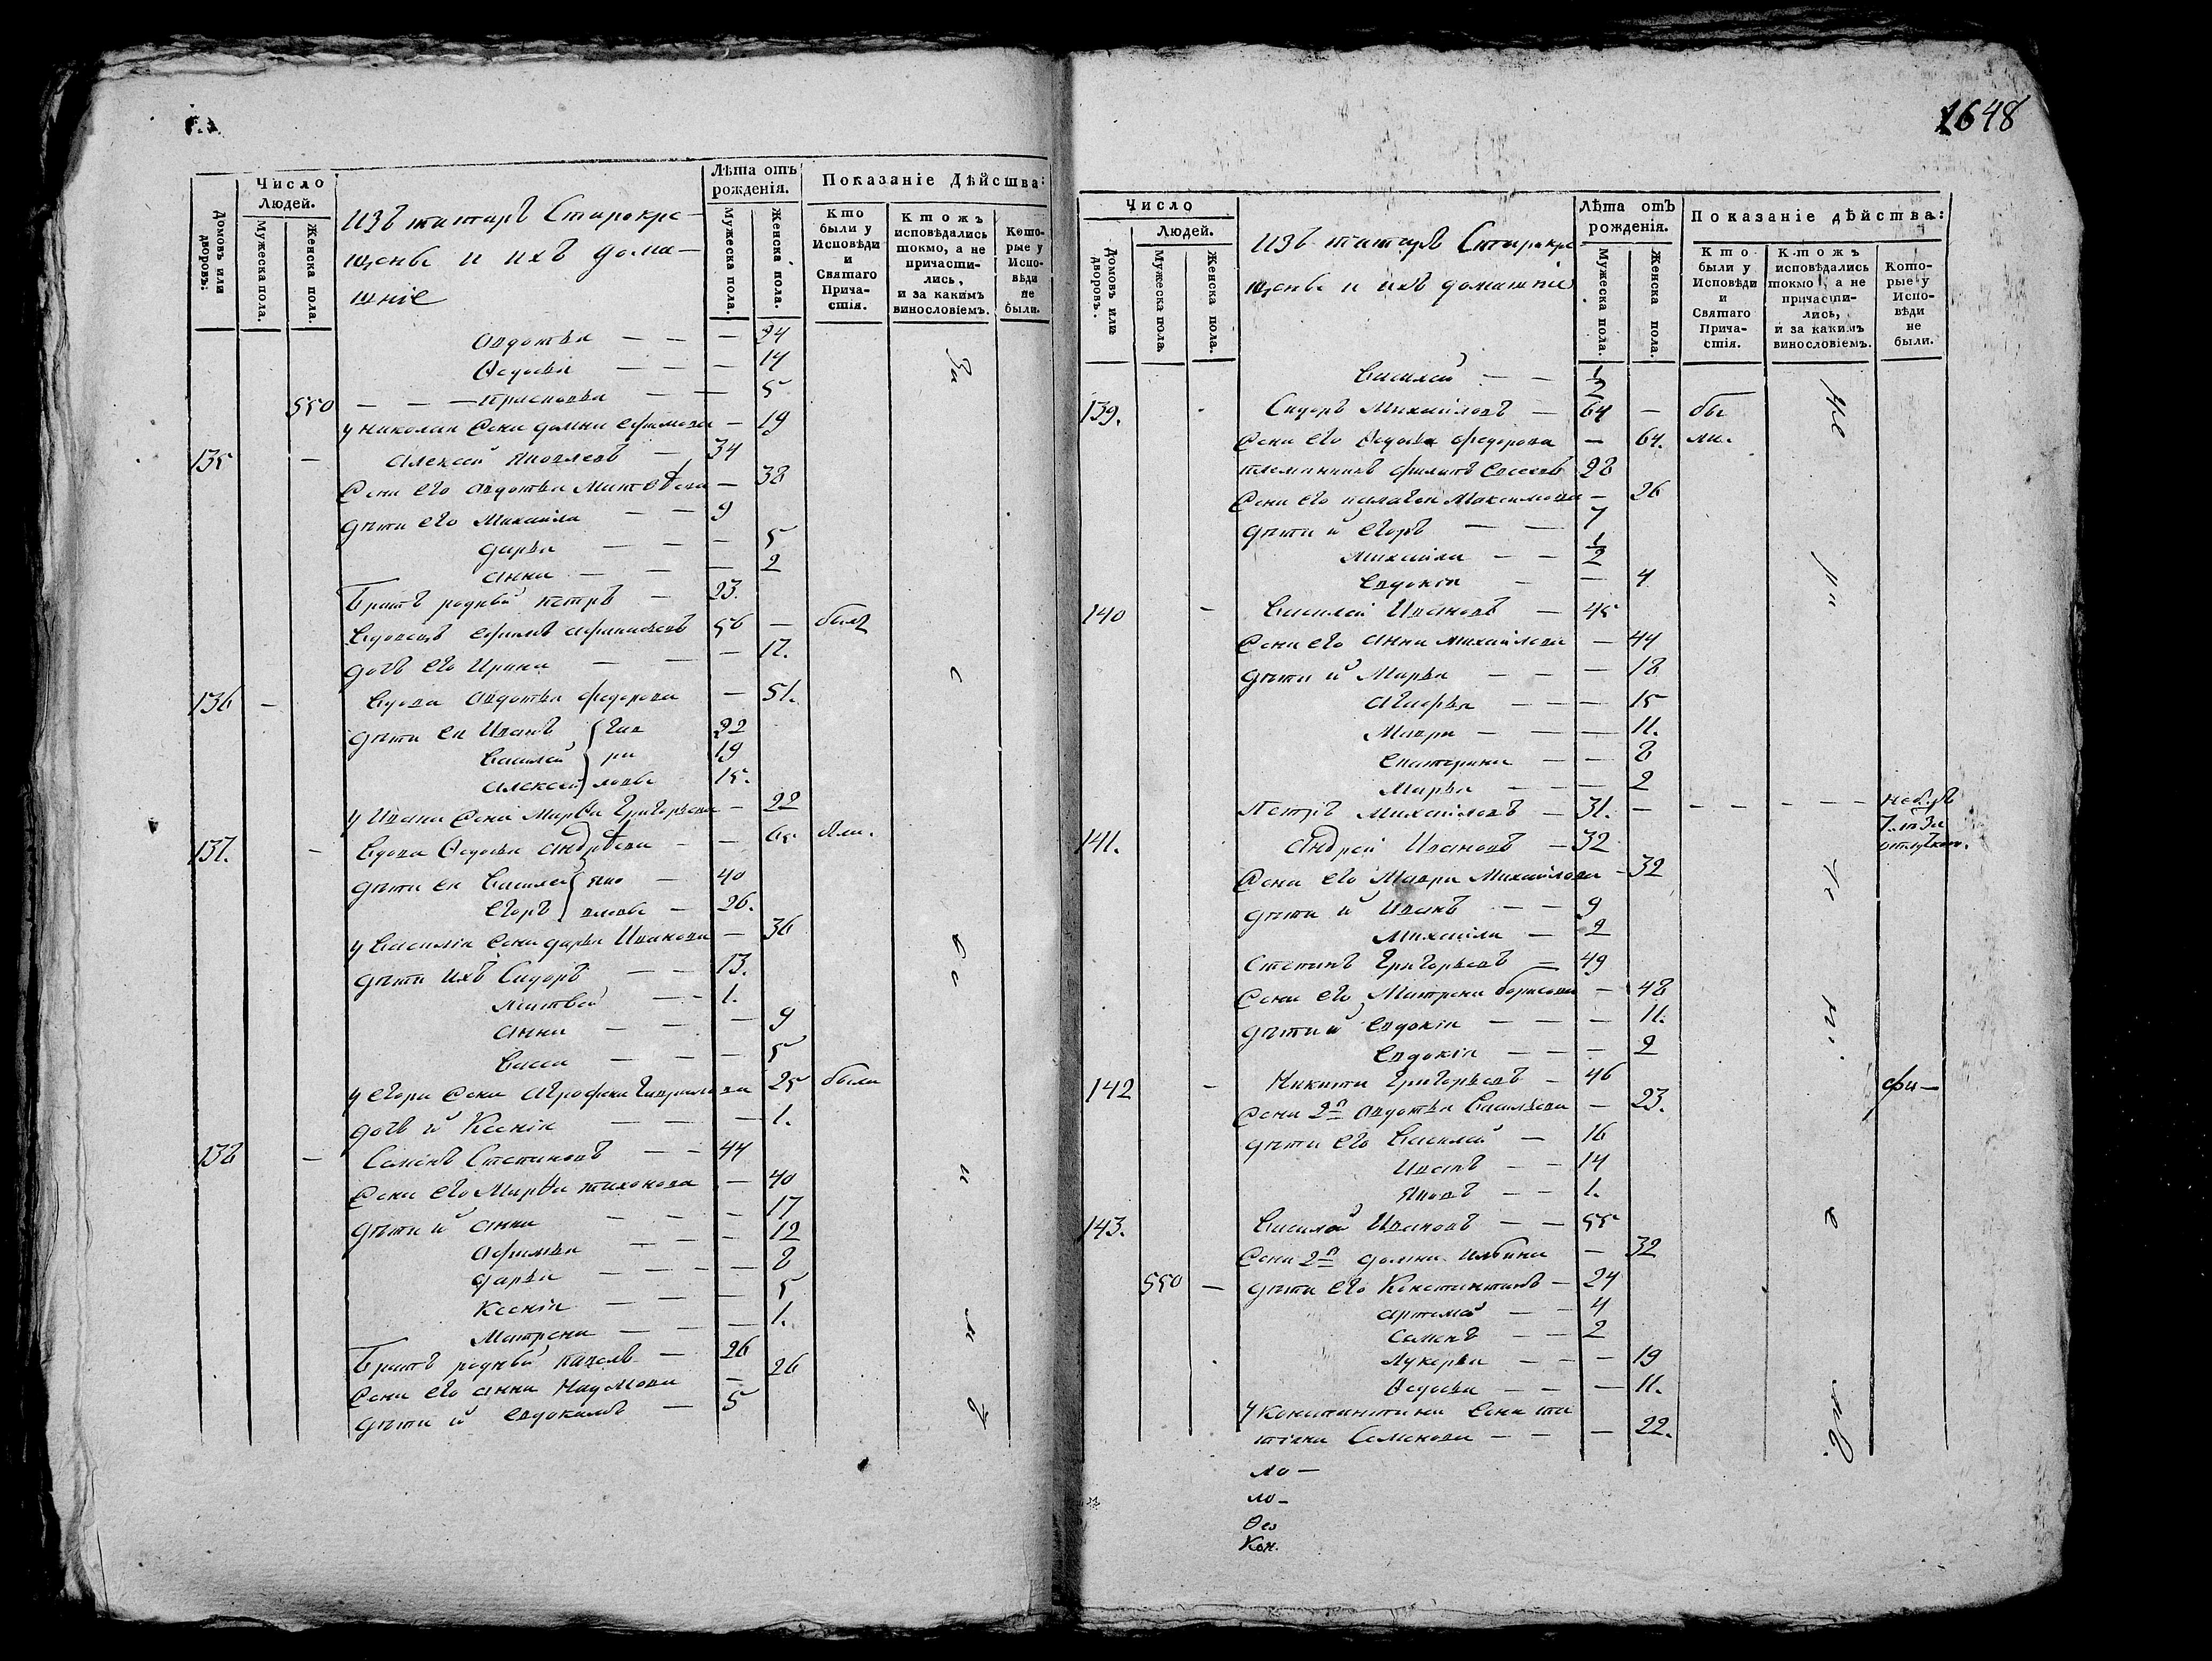 1648
Число
Людей.
Домовъ или дворовъ:
Мужеска пола.
Женска пола.
изъ татаръ Старокре-
щены и ихъ дома-
шніе
Лѣта отъ
рожденія.
Мужеска пола.
Женска пола.
Показаніе Дѣйства:
Кто были у Исповѣди и Святаго Прича-стія.
Ктожъ исповѣдались токмо, а не причасти-лись, и за какимъ винословіемъ.
Кото-рые у Испо-вѣди не были.
Авдотья — — — 24
Ѳедосья — — — 14
550 — — — Прасковья — — 5
у Николая жена Домна Ефимова — 19
135 — Алексей Яковлевъ — 34
жена его Авдотья Матвѣева — 38
дѣти его Михайла — — 9
Дарья — — — 5
Анна — — — 2
Братъ родный Петръ — 23.
Вдовецъ Ефимъ Афанасьевъ 56 — былъ
дочь его Ирина — — — 12.
136 — Вдова Авдотья Федорова — 51.
дѣти ея Иванъ Гав 22
Василей ри 19
Алексей ловы 15.
у Ивана жена Марѳа Григорьева — 22
137. — Вдова Ѳедосья Андрѣева — — 65 были.
дѣти ея Василей Яко — 40
Егоръ влевы — 26.
у Василія жена Дарья Иванова — 36
дѣти ихъ Сидоръ — — 13.
Матвей — — 1.
Анна — — — 9
Васса — — — 5
у Егора жена Агрофена Гаврилова 25 были
дочь й Ксенія — — — 1.
138 — Семенъ Степановъ — — 44
жена его Марѳа Тихонова — 40
дѣти й Анна — — — 17
Афимья — — — 12
Дарья — — — — 8
Ксенія — — — 5
Матрена — — — 1.
Братъ родный Павелъ — 26
жена его Анна Наумова — 26
дѣти й Евдокимъ — 5
Число
Людей.
Домовъ или дворовъ.
Мужеска пола.
Женска пола.
изъ татаръ Старокре-
щены и ихъ домашніе
Лѣта отъ
рожденія.
Мужеска пола.
Женска пола.
Показаніе дѣйства:
Кто были у Исповѣди и Святаго Прича-стія.
Ктожъ исповѣдались токмо, а не причасти-лись, и за какимъ винословіемъ.
Кото-рые у Испо-вѣди не были.
Василей — — 1/2
139. Сидоръ Михайловъ — 64 — бы
жена его Ѳедосья Федорова — 64. ли.
племянникъ Филипъ 28
жена его Палагея Максимова — 26
дѣти й Егоръ — — 7
Михайла — — 1/2
Евдокія — — 4
140 — Василей Ивановъ — 45
жена его Анна Михайлова — 44
дѣти й Марья — — — 18
Агафья — — — 15
Мавра — — — 11.
Екатерина — — 8
Марья — — — 2
Петръ Михайловъ — 31. — — — — — — небылъ
141. Андрей Ивановъ — 32
жена его Мавра Михайлова — 32
дѣти й Иванъ — — 9
Михайла — 2
Степанъ Григорьевъ — 49
жена его Матрена Борисова — 48
дѣти й Евдокія — — — 11.
Евдокія — — — 2
142 — Никита Григорьевъ — 46
жена 2я Авдотья Васильева — 23.
дѣти его Василей — 16
Иванъ — — 14
Яковъ — — 1.
143. Василей Ивановъ — — 55
жена 2я Домна Ильина — 32
550 — дѣти его Константинъ — 24
Артемей — — 4
Семенъ — — 2
Лукерья — — — 19
Ѳедосья — — — 11.
у Константина жена та
тіяна Семенова — — — 22.